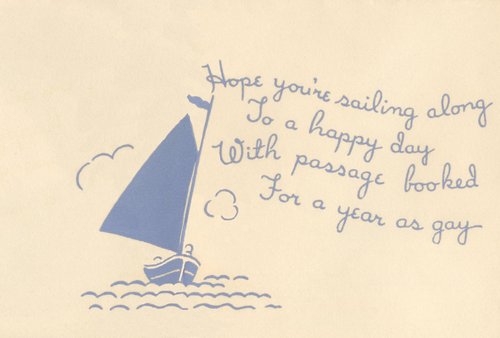 Hope you're sailing along
To a happy day
With passage booked
For a year as gay